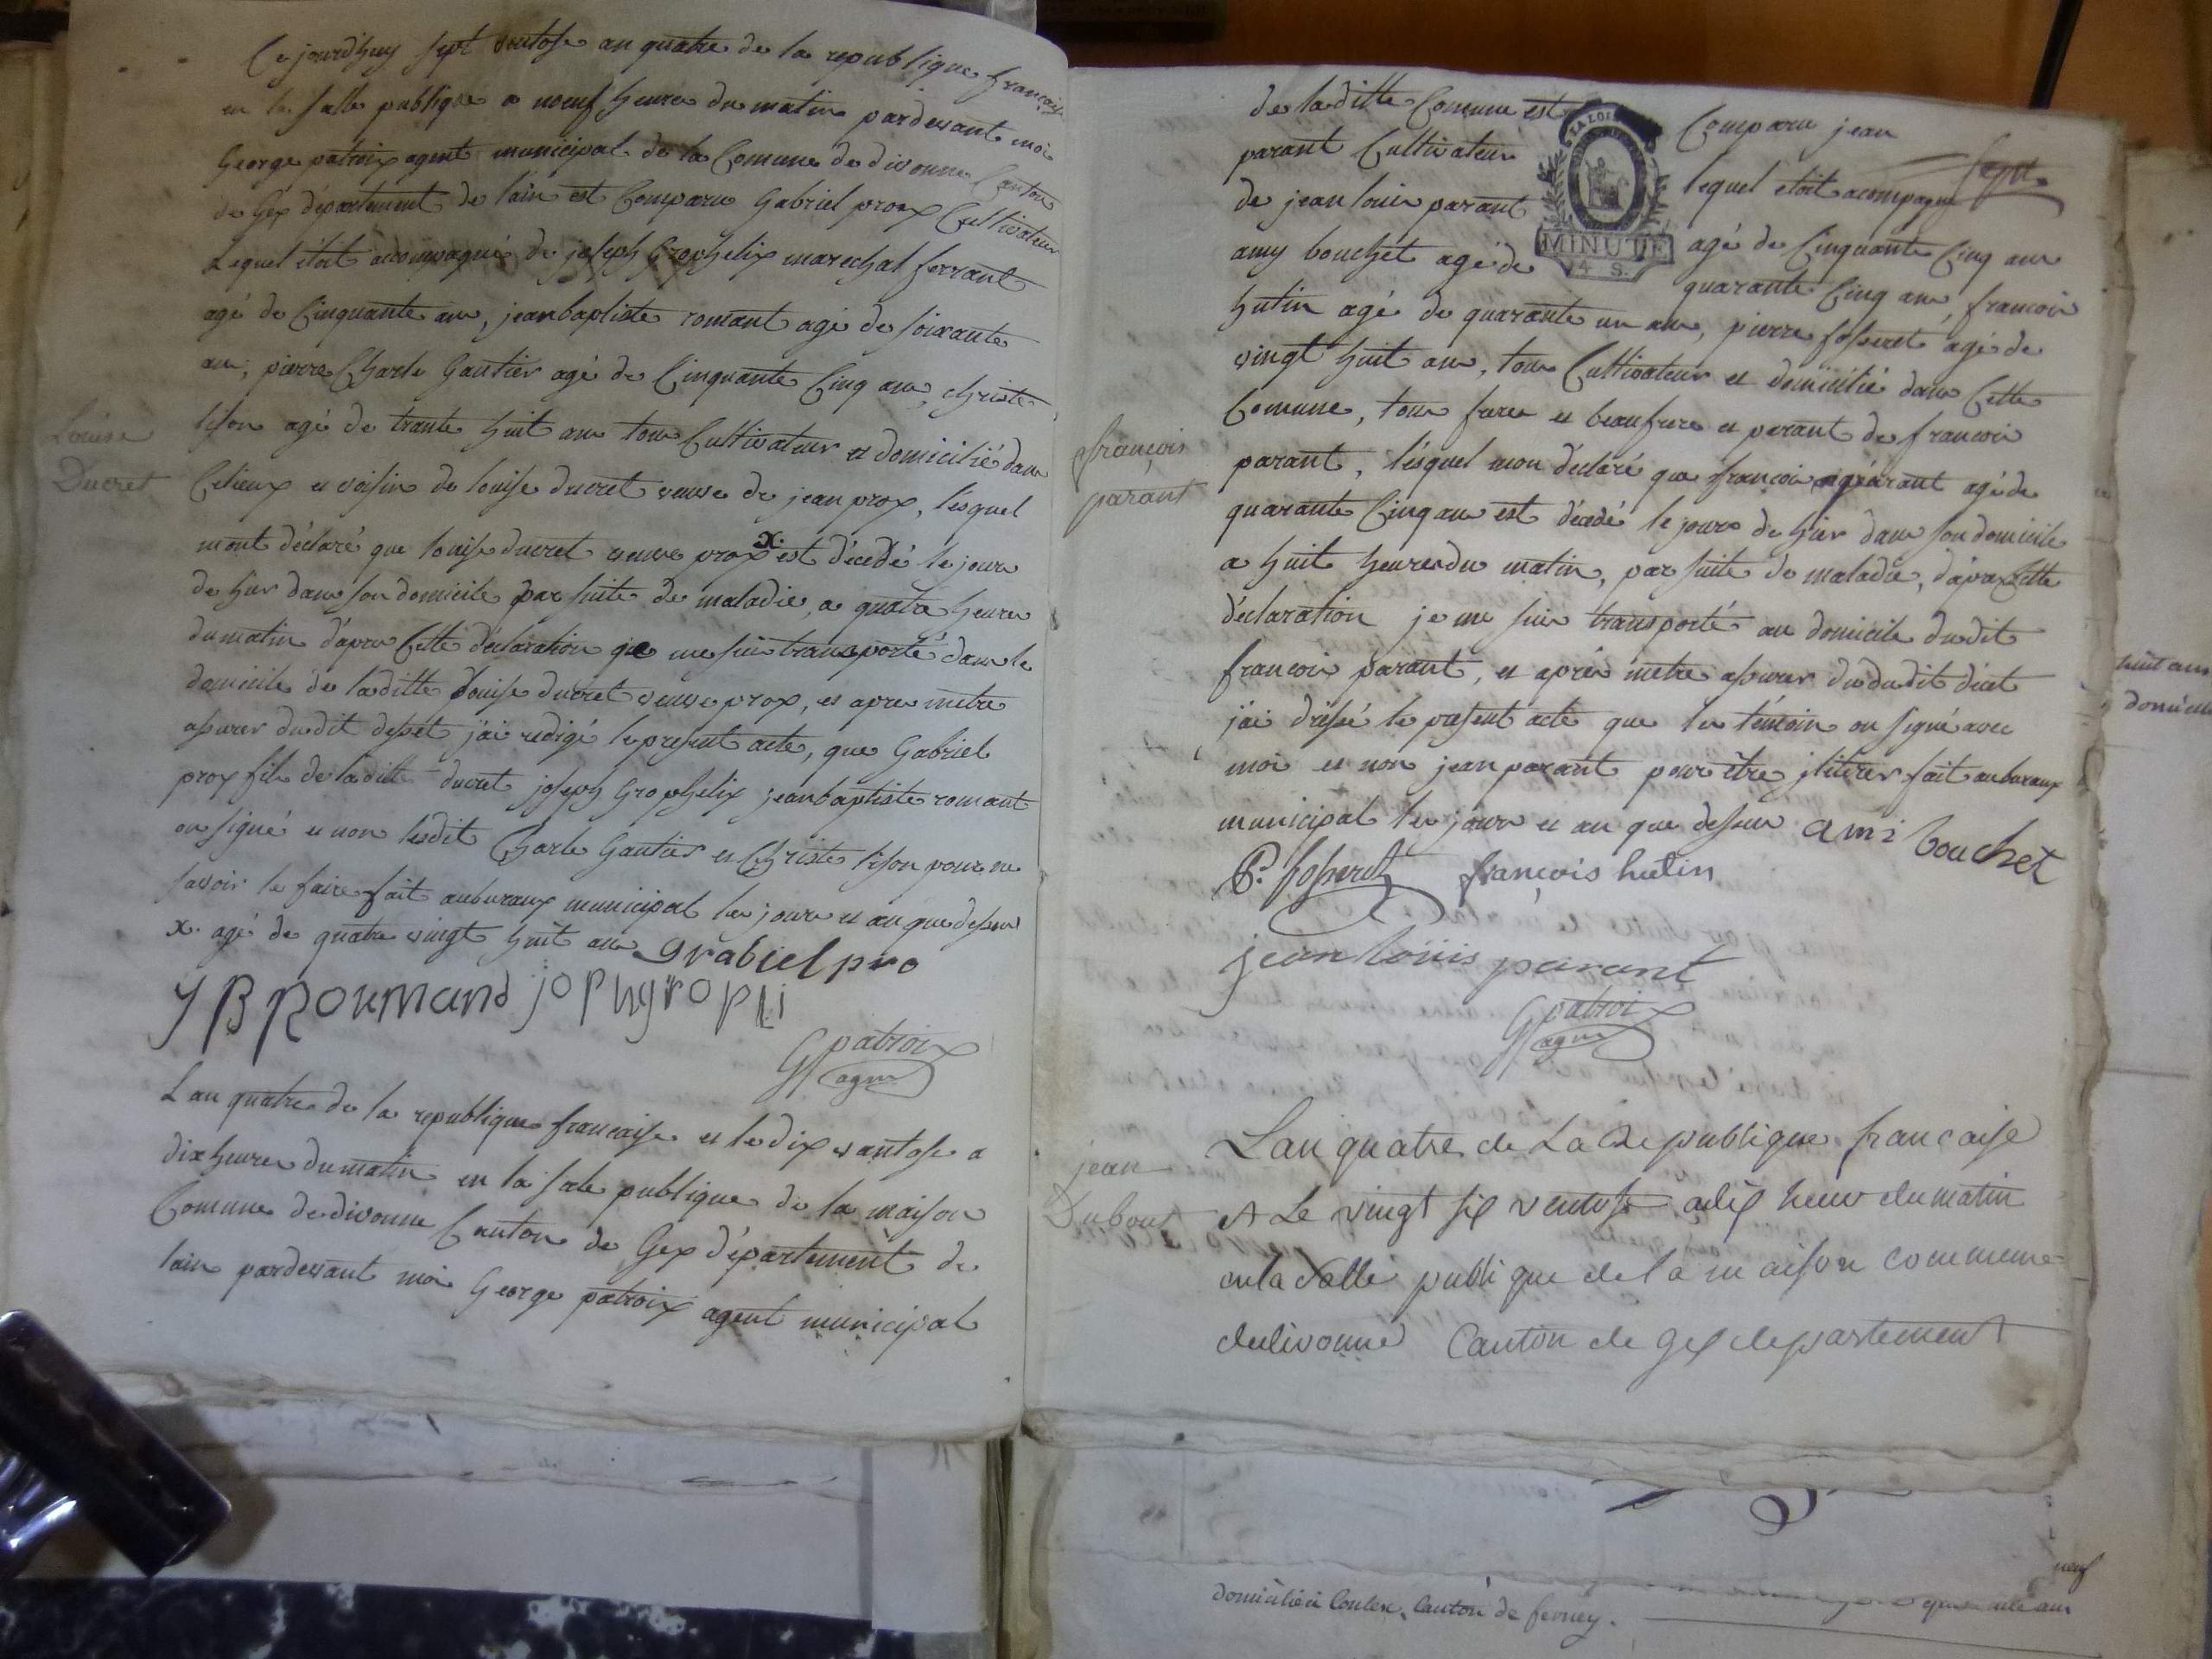 Ce jourdhuy sept ventose an quatre de la republique francaise
en la salle publique a neuf heures du matin pardevant moi
George patroix agent municipal de la Comune de divonne Canton
de Gex département de lain est Comparu Gabriel prox Cultivateur
Lequel étoit accompagné de joseph Grophelix marechal ferrant
agé de Cinquante ans, jean baptiste romant agé de soixante
ans, pierre Charle Gautier agé de Cinquante Cinq ans, christe
lison agé de trante huit ans tous Cultivateur et domicilié dans
Celieux et voisin de louise ducret veuve de jean prox, lesquel
mont déclaré que louise ducret veuve prox x. est décedé le jour
de hier dans son domicile par suite de maladie, a quatre heures
du matin d'apres Cette déclaration je me suis transporté dans le
domicile de laditte Louise ducret veuve prox, et apres metre
assurer dudit deset j'ai redigé le present acte, que Gabriel
prox fils de laditte ducret joseph Grophelix jean baptiste romant
on signé et non lesdit Charle Gautier et Christe lison pour ne
savoir le faire fait au buraux municipal les jours et an que dessus
x. agé de quatre vingt huit ans grabiel pro
J B Roumand joph gropli
G patroix
agent
Louise
Ducret
L an quatre de la republique francaise et le dix vantose a
dix heures du matin en la sale publique de la maison
Comune de divonne Canton de Gex département de
lain pardevant moi George patroix agent municipal
de laditte Comune est Comparu jean
parant Cultivateur lequel étoit acompagné
sept
de jean louis parant agé de Cinquante Cinq ans
amy bouchet agé de quarante Cinq ans, francois
hutin agé de quarante un ans, pierre fosseret agé de
vingt huit ans, tous Cultivateur et domicilié dans Cette
Comune, tous frere et beaufrere et parant de francois
parant, lesquel mon déclaré que francois parant agé de
quarante Cinq ans est décedé le jour de hier dans son domicile
a huit heures du matin, par suite de maladie, d'apres Cette
déclaration je me suis transporté au domicile dudit
francois parant, et aprés metre assurer du dudit décet
j'ai dressé le present acte que les témoin on signé avec
moi et non jean parant pour être jliterer fait au buraux
municipal les jours et an que dessus ami bouchet
P. fosseret françois hutin
jean louis parant
G patroix
agent
LA LOI
MINUTE
4 S.
françois
parant
Lan quatre de La Republique francaise
et Le vingt six ventose a dix heur du matin
en la salle publique de la maison commune
de divonne Canton de gex departement
jean
Dubout
huit ans
domicilié
neuf
domicilié à Coulex, Canton de ferney.